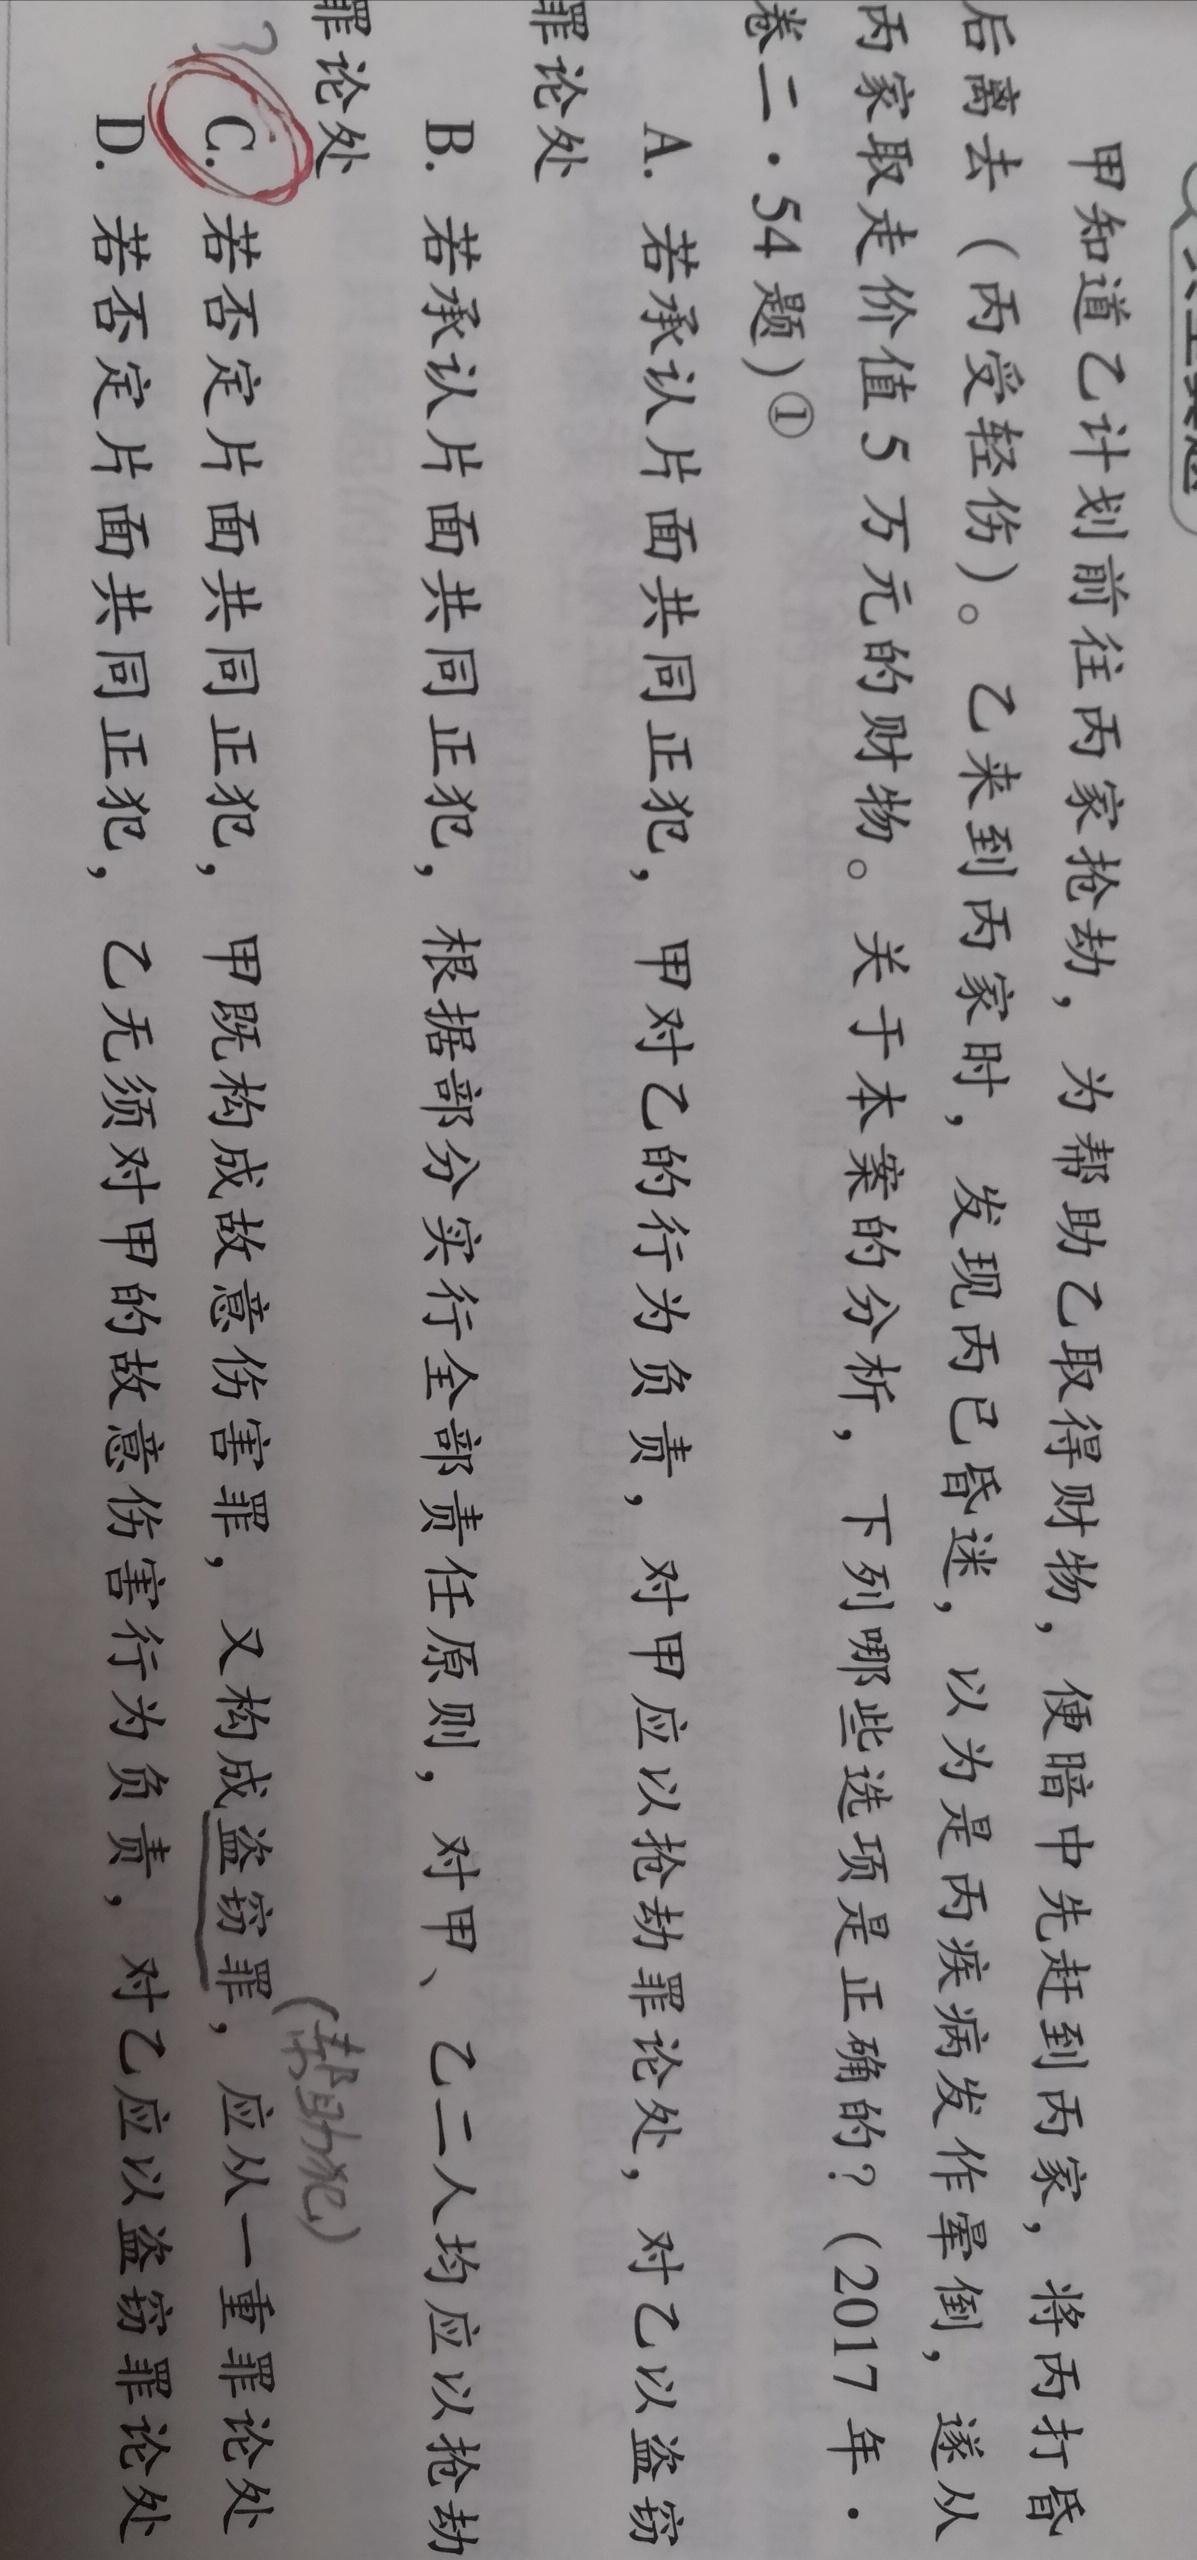 甲知道乙计划前往丙家抢劫，为帮助乙取得财物，便暗中先赶到丙家，将丙打昏
后离去（丙受轻伤）。乙来到丙家时，发现丙已昏迷，以为是丙疾病发作晕倒，遂从
丙家取走价值5万元的财物。关于本案的分析，下列哪些选项是正确的？（2017年·
卷二·54题）①
A. 若承认片面共同正犯，甲对乙的行为负责，对甲应以抢劫罪论处，对乙以盗窃
罪论处
B. 若承认片面共同正犯，根据部分实行全部责任原则，对甲、乙二人均应以抢劫
罪论处
(帮助犯)
? C. 若否定片面共同正犯，甲既构成故意伤害罪，又构成盗窃罪，应从一重罪论处
D. 若否定片面共同正犯，乙无须对甲的故意伤害行为负责，对乙应以盗窃罪论处